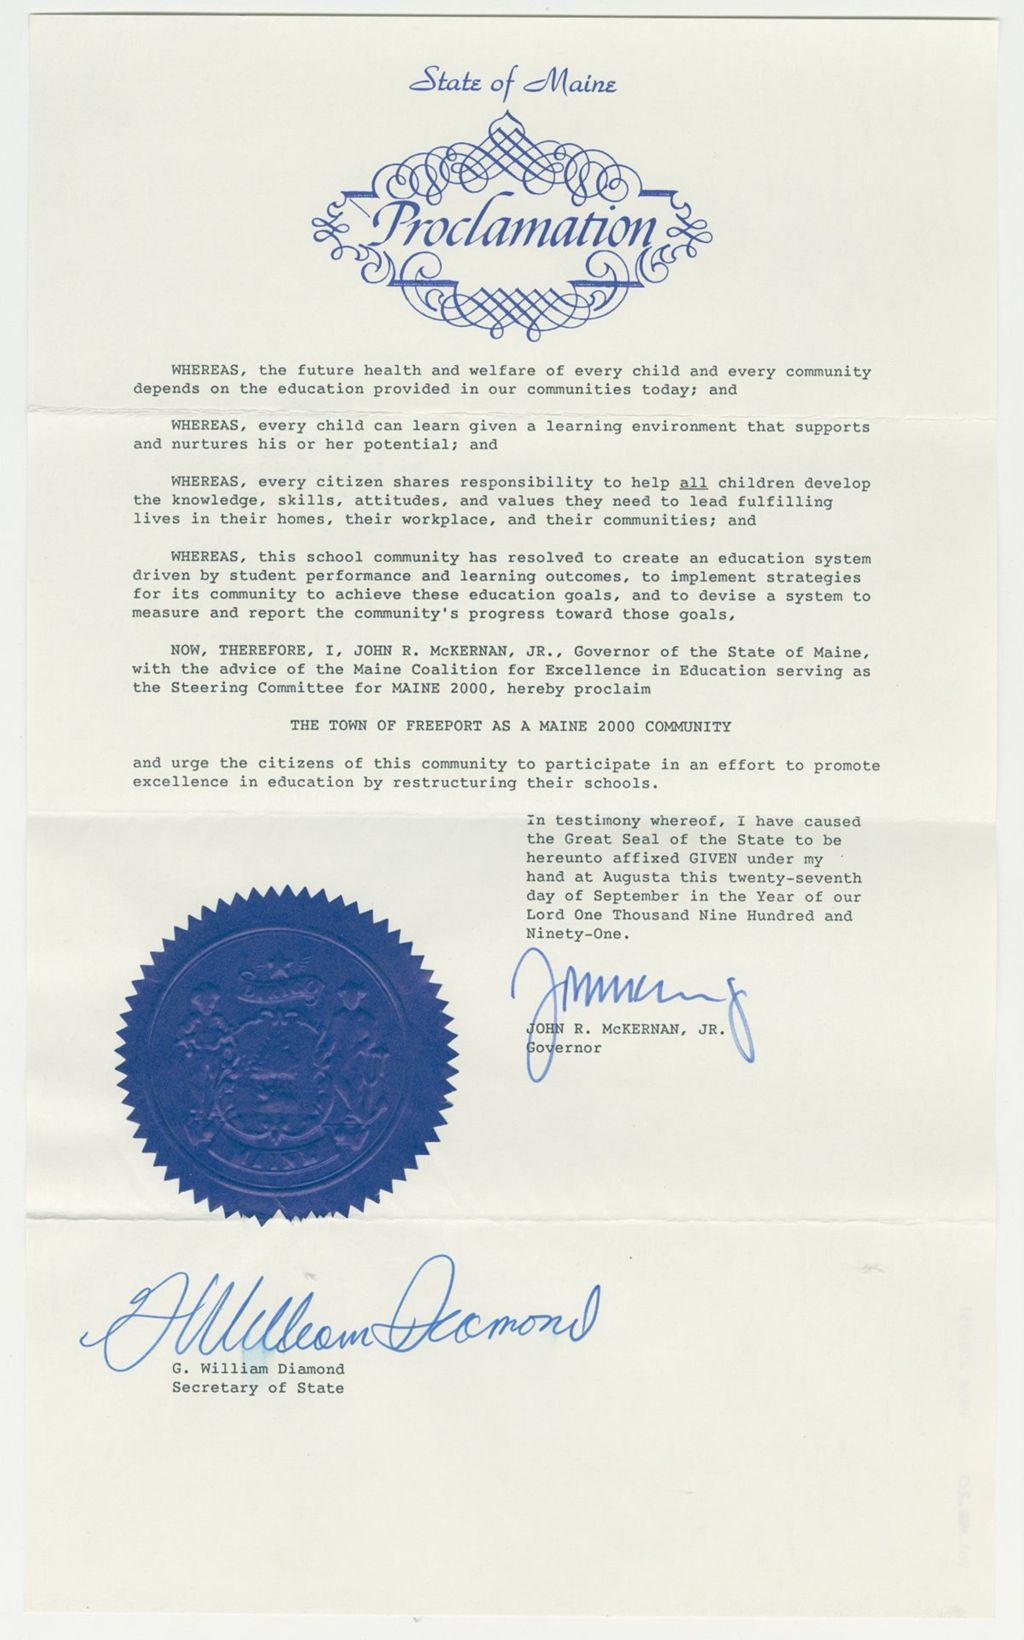 State of Maine
Proclamation
WHEREAS, the future health and welfare of every child and every community
depends on the education provided in our communities today; and
WHEREAS, every child can learn given a learning environment that supports
and nurtures his or her potential; and
WHEREAS, every citizen shares responsibility to help all children develop
the knowledge, skills, attitudes, and values they need to lead fulfilling
lives in their homes, their workplace, and their communities; and
WHEREAS, this school community has resolved to create an education system
driven by student performance and learning outcomes, to implement strategies
for its community to achieve these education goals, and to devise a system to
measure and report the community's progress toward those goals,
NOW, THEREFORE, I, JOHN R. McKERNAN, JR., Governor of the State of Maine,
with the advice of the Maine Coalition for Excellence in Education serving as
the Steering Committee for MAINE 2000, hereby proclaim
THE TOWN OF FREEPORT AS A MAINE 2000 COMMUNITY
and urge the citizens of this community to participate in an effort to promote
excellence in education by restructuring their schools.
In testimony whereof, I have caused
the Great Seal of the State to be
hereunto affixed GIVEN under my
hand at Augusta this twenty-seventh
day of September in the Year of our
Lord One Thousand Nine Hundred and
Ninety-One.
JOHN R. McKERNAN, JR.
Governor
MAINE
G William Diamond
G. William Diamond
Secretary of State